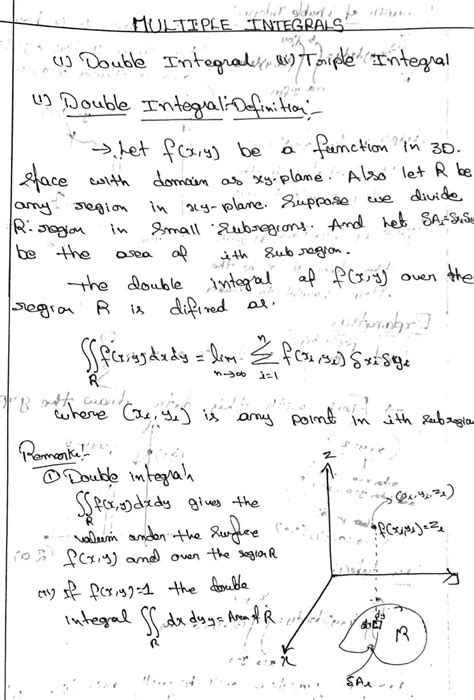 MULTIPLE INTEGRALS
(i) Double Integral (ii) Triple Integral
(i) Double Integral:- Definition:-
→ Let f(x,y) be a function in 3D.
Space with domain as xy-plane. Also let R be
any region in xy-plane. Suppose we divide
R- region in small subregions. And let δAi=δxiδyi
be the area of ith sub region.
The double integral of f(x,y) over the
region R is difined as.
∬R f(x,y)dxdy = lim n→∞ Σ i=1 n f(xi,yi) δxi δyi
where (xi,yi) is any point in ith subregion
Remark:-
(i) Double integral
∬R f(x,y)dxdy gives the
under the surface
f(x,y) and over the region R
(ii) If f(x,y)=1 the double
integral ∬R dxdy = Area of R
z
(xi,yi,zi)
f(xi,yi)=zi
y
dy
dx
R
x
δAi